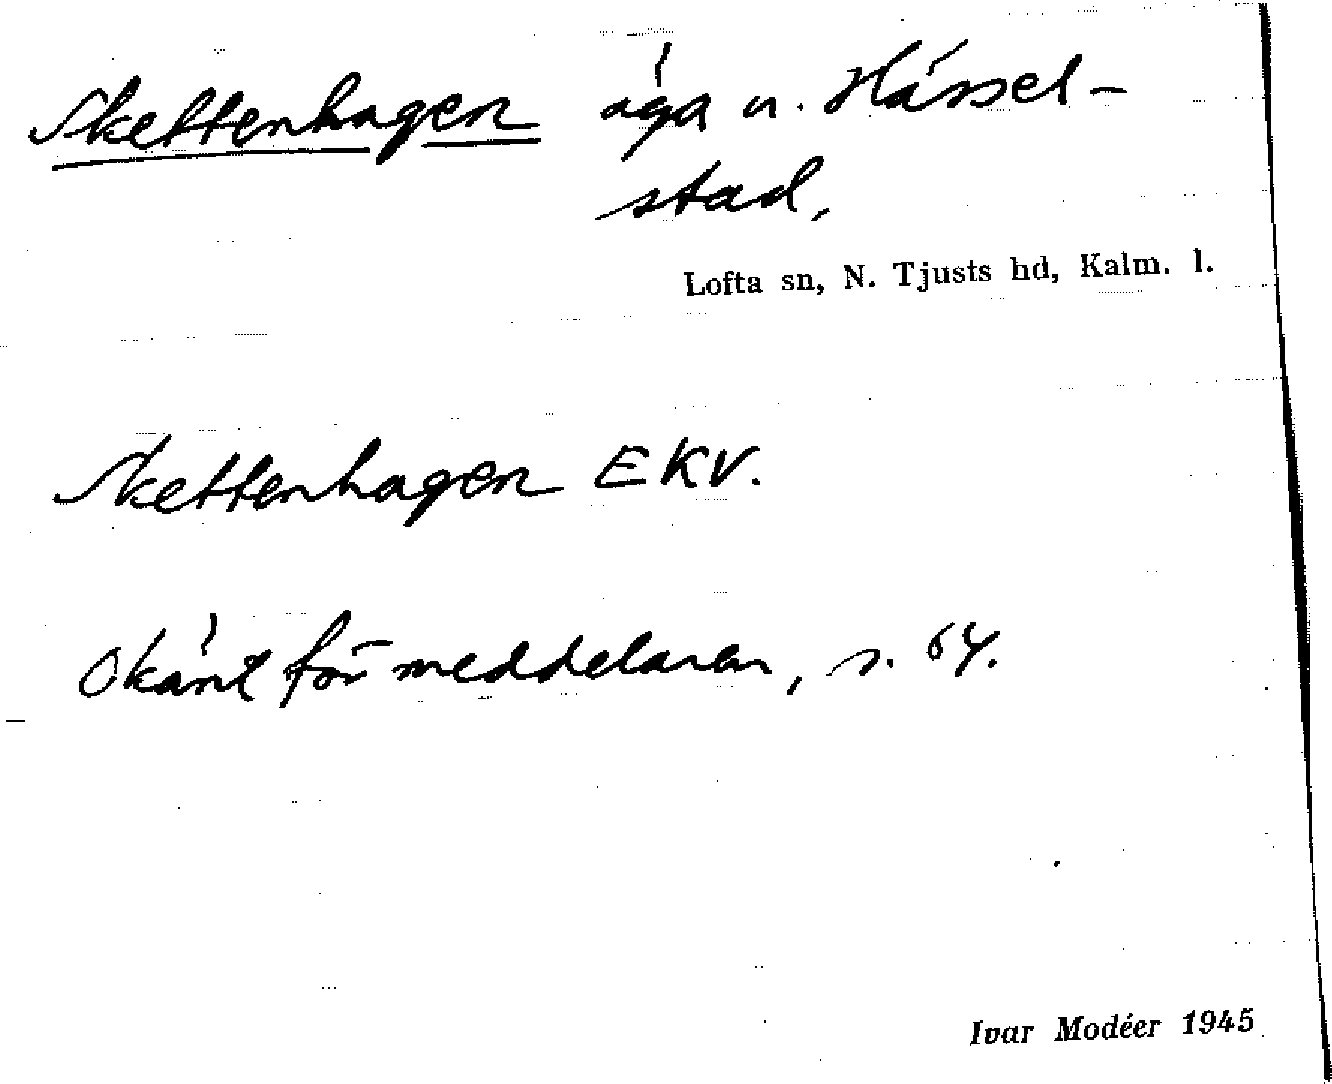 Skettenhagen äga u. Hässel-
stad,
Lofta sn, N. Tjusts hd, Kalm. l.
Skettenhagen EKV.
Okänt för meddelaren, s. 64.
Ivar Modéer 1945